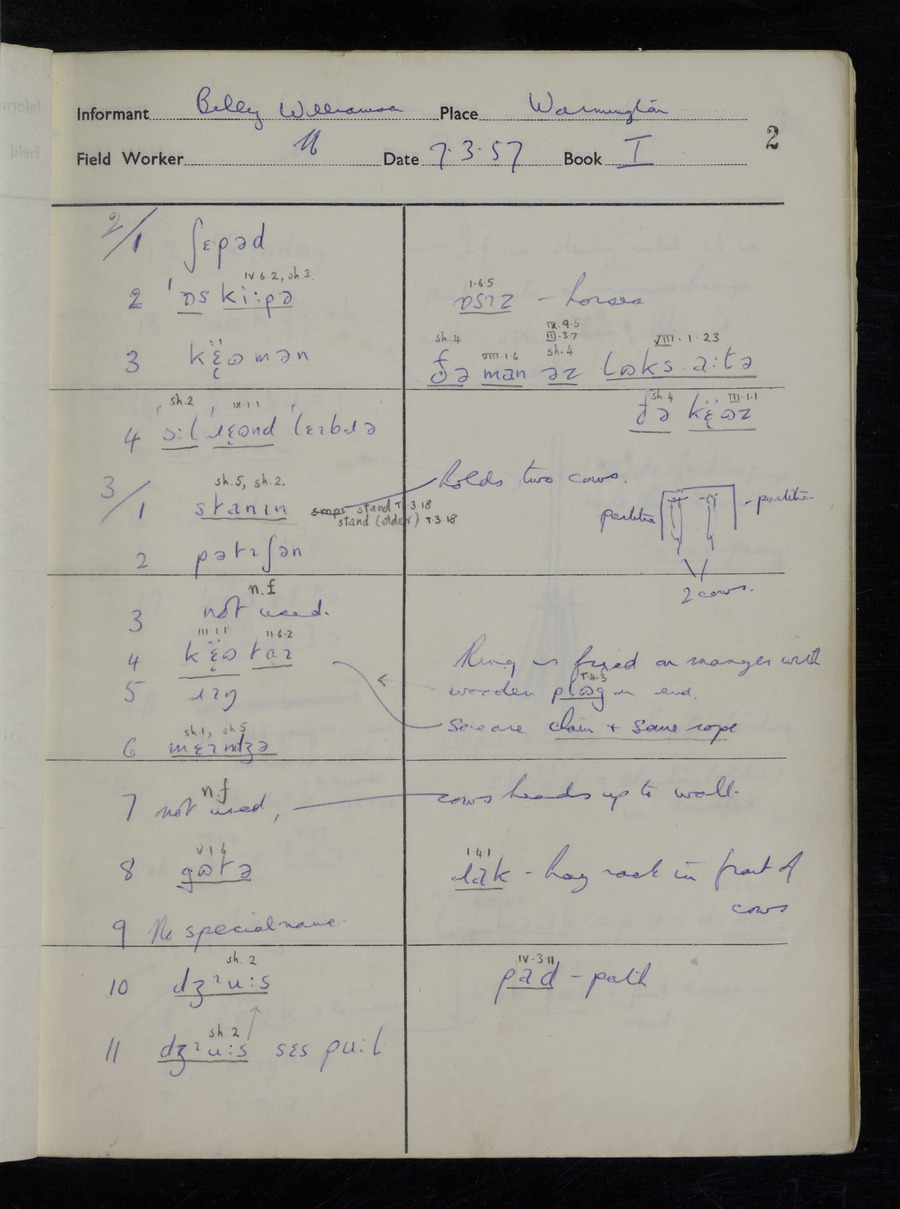 Informant Billy Williamson Place Warmington
Field Worker Date 7.3.57 Book I
2
2/1 ʃɛpəd
IV.6.2, sh.1
2 'ɒski:pə
1.6.5
ɒsɪz - horses
3
sh.4 VIII.1.6 IX.9.5
III.3.7
sh.4 VIII.1.23
ðə man əz lɒks a:tə
sh.4 III.1.1
ðə
sh.2 IX.1.1
4
3/1
sh.5, sh.2.
stanɪn
stand T.3.18
stand (older) T.3.18
holds two cows.
partition
- partition
2 cows.
2 pətɪʃən
n.f
3 not used.
III.1.1 II.6.2
4
5 ɹɪŋ
Ring is fixed on manger with
T.4.3
wooden plɷg on end.
Some are chain + some rope
sh.1, sh5
6 mɛɪndʒə
n.f
7 not used,
cows heads up to wall.
V 1 6
8 gɷtə
1.4.1
ɹak - hay rack in front of
cows
9 No special name.
sh. 2
10 dʒᶦu:s
IV.3 11
pad - path
sh 2
11 dʒᶦu:s sɛs pu:l